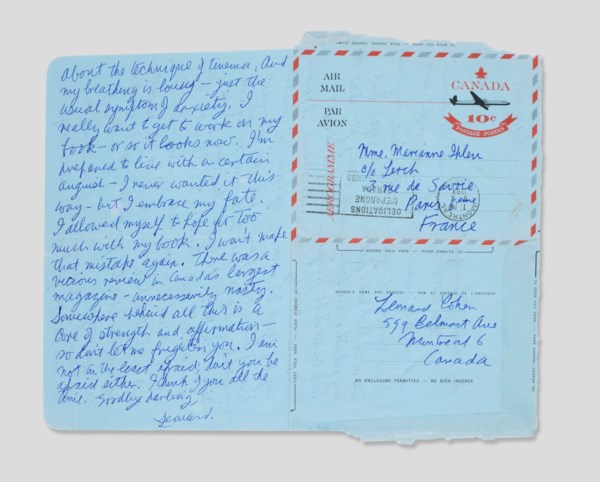 about the technique of cinema. And
my breathing is lousy – just the
usual symptom of anxiety. I
really want to get to work on my
book – or so it looks now. I'm
prepared to live with a certain
anguish – I never wanted it this
way – but I embrace my fate.
I allowed myself to hope for too
much with my book. I won't make
that mistake again. There was a
vicious review in Canada's largest
magazine – unnecessarily nasty.
Somewhere behind all this is a
core of strength and affirmation –
so don't let me frighten you. I am
not in the least afraid, don't you be
afraid either. I think of you all the
time. Goodbye darling
Leonard.
AIR
MAIL
PAR
AVION
AEROGRAMME
CANADA
10c
POSTAGE POSTES
OBLIGATIONS
D'EPARGNE
Mme. Marianne Ihlen
c/o Lerch
rue de Savoie
Paris 6eme
France
SENDER'S NAME AND ADDRESS
Leonard Cohen
599 Belmont Ave
Montreal 6
Canada
NO ENCLOSURE PERMITTED – NE RIEN INSÉRER